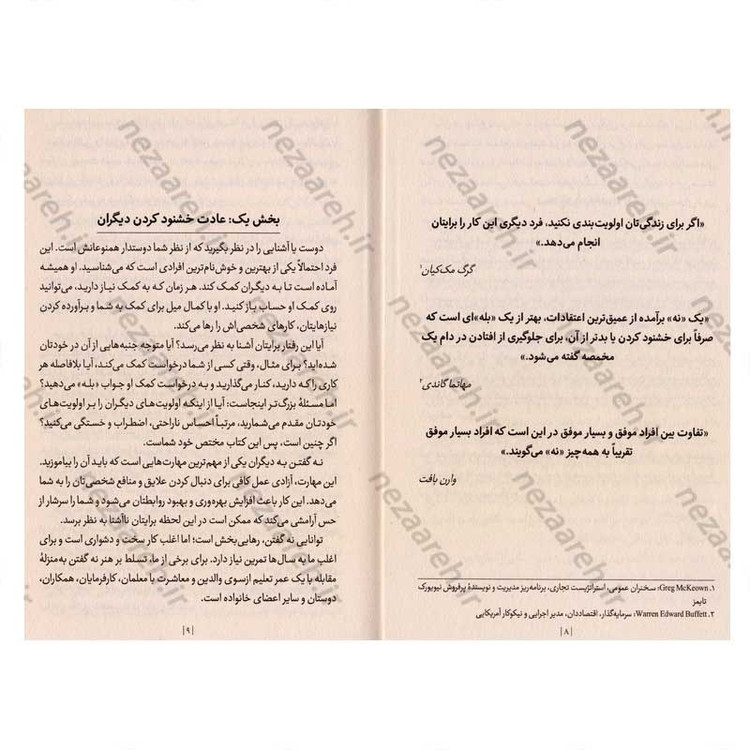 «اگر برای زندگی‌تان اولویت‌بندی نکنید، فرد دیگری این کار را برایتان
انجام می‌دهد.»
گرگ مک‌کیان۱
«یک «نه» برآمده از عمیق‌ترین اعتقادات، بهتر از یک «بله»ای است که
صرفاً برای خشنود کردن یا بدتر از آن، برای جلوگیری از افتادن در دام یک
مخمصه گفته می‌شود.»
مهاتما گاندی۲
«تفاوت بین افراد موفق و بسیار موفق در این است که افراد بسیار موفق
تقریباً به همه‌چیز «نه» می‌گویند.»
وارن بافت
۱. Greg McKeown؛ سخنران عمومی، استراتژیست تجاری، برنامه‌ریز مدیریت و نویسندهٔ پرفروش نیویورک
تایمز
۲. Warren Edward Buffett؛ سرمایه‌گذار، اقتصاددان، مدیر اجرایی و نیکوکار آمریکایی
|۸|
بخش یک: عادت خشنود کردن دیگران
دوست یا آشنایی را در نظر بگیرید که از نظر شما دوستدار همنوعانش است. این
فرد احتمالاً یکی از بهترین و خوش‌نام‌ترین افرادی است که می‌شناسید. او همیشه
آماده است تا به دیگران کمک کند. هر زمان که به کمک نیاز دارید، می‌توانید
روی کمک او حساب باز کنید. او با کمال میل برای کمک به شما و برآورده کردن
نیازهایتان، کارهای شخصی‌اش را رها می‌کند.
آیا این رفتار برایتان آشنا به نظر می‌رسد؟ آیا متوجه جنبه‌هایی از آن در خودتان
شده‌اید؟ برای مثال، وقتی کسی از شما درخواست کمک می‌کند، آیا بلافاصله هر
کاری را که دارید، کنار می‌گذارید و به درخواست کمک او جواب «بله» می‌دهید؟
اما مسئلهٔ بزرگ‌تر اینجاست: آیا از اینکه اولویت‌های دیگران را بر اولویت‌های
خودتان مقدم می‌شمارید، مرتباً احساس ناراحتی، اضطراب و خستگی می‌کنید؟
اگر چنین است، پس این کتاب مختص خود شماست.
نه گفتن به دیگران یکی از مهم‌ترین مهارت‌هایی است که باید آن را بیاموزید.
این مهارت، آزادی عمل کافی برای دنبال کردن علایق و منافع شخصی‌تان را به شما
می‌دهد. این کار باعث افزایش بهره‌وری و بهبود روابطتان می‌شود و شما را سرشار از
حس آرامشی می‌کند که ممکن است در این لحظه برایتان ناآشنا به نظر برسد.
توانایی نه گفتن، رهایی‌بخش است؛ اما اغلب کار سخت و دشواری است و برای
اغلب ما به سال‌ها تمرین نیاز دارد. برای برخی از ما، تسلط بر هنر نه گفتن به‌منزلهٔ
مقابله با یک عمر تعلیم ازسوی والدین و معاشرت با معلمان، کارفرمایان، همکاران،
دوستان و سایر اعضای خانواده است.
|۹|
nezaareh.ir